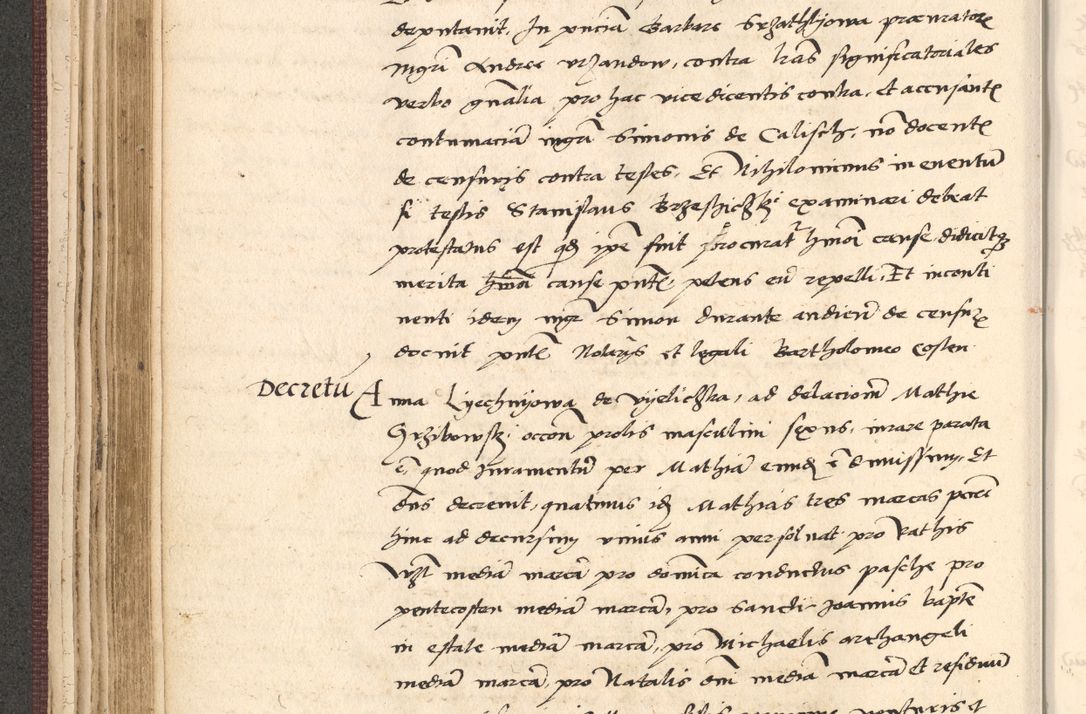 deputavit. In pnciâ Barbare Srzathlyowa procuratore
mgri Andree vrzandow, contra lrâs significatoriales
verbo gnâlia pro hac vice dicentis contra, et accusante
contumaciâ mgri Simonis de Calisch, nô docente
de censuris contra testes. Et Nihilominus in eventû
si testis Stanislaus examinari debeat
protestatus est qd ipe fuit procurator hmôi cause didicitqz
merita hmôi cause pnte, petens eû repelli. Et inconti
nenti idem mgr Simon durante audienciê de censuris
docuit pnte Notariis et legali Bartholomeo Costen
Decretû Anna Lyechnyowa de Vyeliczka, ad delacionê Mathie
Grzibowski occôn prolis masculini sexus, iurare parata
ê, quod Iuramentû per Mathiâ eundem ê dimissum, Et
dns decrevit, quatinus idem Mathias tres marcas
hinc ad decursum unius anni persolvat pro rathis
Vzt mediâ marcâ pro dominica conductus pasche pro
pentecosten mediâ marcâ, pro Sancti Joannis bapte
in estate mediâ marcâ, pro Michaelis archangeli
mediâ marcâ, pro Natalis dni mediâ marcâ et residuû